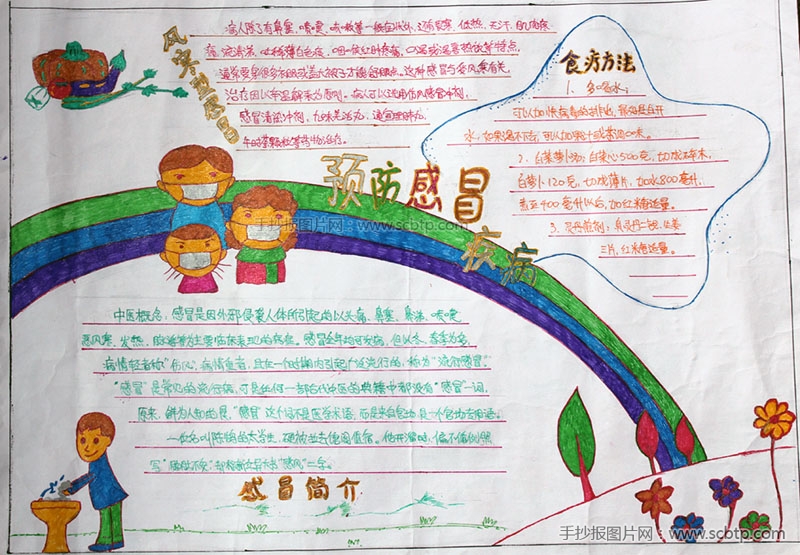 风寒型感冒
病人除了有鼻塞、喷嚏、咳嗽等一般症状外，还有畏寒、低热、无汗、肌肉疼
痛、流清涕、吐稀薄白色痰、咽喉红肿疼痛、口不渴或渴喜热饮等特点，
通常要穿很多衣服或盖大被子才觉得舒服点。这种感冒与
治疗应以辛温解表为原则。病人可以选用伤风感冒冲剂、
感冒清热冲剂、九味羌活丸、通宣理肺丸、
午时茶颗粒等药物治疗。
食疗方法
1、多喝水；
可以加快病毒的 最好是白开
水，如果喝不下去，可以加果汁或茶调口味。
2、白菜萝卜汤；白菜心500克，切成碎末，
白萝卜120克，切成薄片，加水800毫升，
煮至400毫升以后，加红糖适量。
3、 生姜
三片，红糖适量。
预防感冒
疾病
手抄报图片网：www.scbtp.com
中医概念：感冒是因外邪侵袭人体所引起的以头痛，鼻塞，鼻涕，喷嚏
恶风寒，发热，脉浮等为主要临床表现的病症。感冒全年均可发病，但以冬、春季为多，
病情轻者称“伤风”，病情重者，且在一个时期内引起广泛流行的，称为“流行感冒”。
“感冒”是常见的流行病，可是任何一部古代中医的典籍中都没有“感冒”一词，
原来，鲜为人知的是，“感冒”这个词不是医学术语，而是来自官场，是一个官场专用语。
一位名叫陈鹄的太学生，硬被
写“肠肚不安”
感冒简介
手抄报图片网：www.scbtp.com